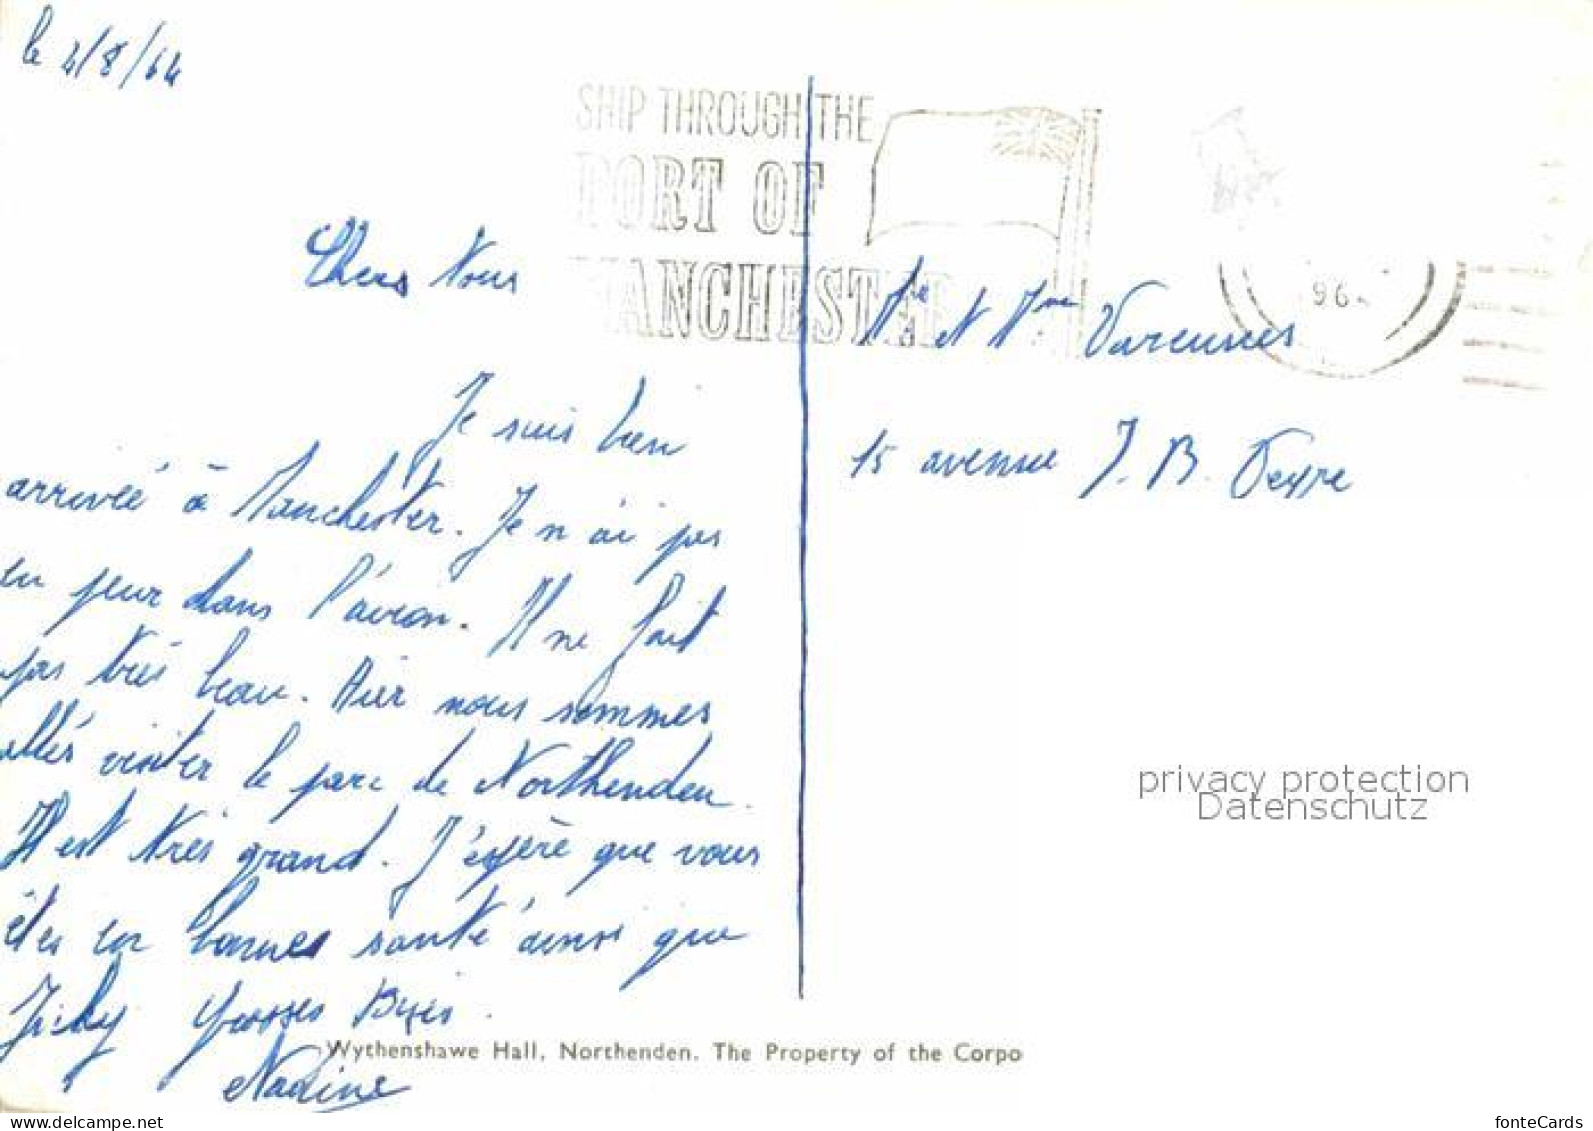 le 4/8/64
SHIP THROUGH THE
PORT OF
MANCHESTER
196
Chers Nous
Je suis bien
arrivée à Manchester. Je n'ai pas
eu peur dans l'avion. Il ne fait
pas très beau. Hier nous sommes
allés visiter le parc de Northenden.
Il est très grand. J'espère que vous
êtes en bonnes santé ainsi que
Grosses Bises.
Nadine
Mr et Mme
15 avenue J. B.
privacy protection
Datenschutz
Wythenshawe Hall, Northenden. The Property of the Corpo
www.delcampe.net
fonteCards